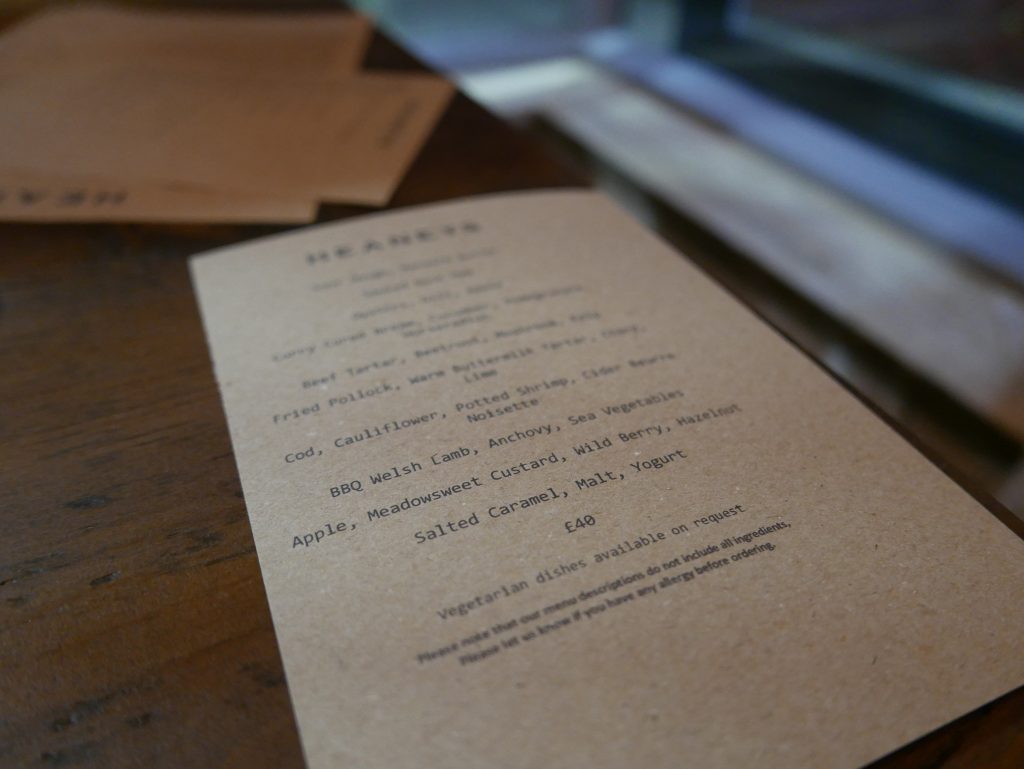 HEANEYS
Beef Tartar, Beetroot,
Fried Pollock, Warm Buttermilk Tartar,
Lime
Cod, Cauliflower, Potted Shrimp, Cider Beurre
Noisette
BBQ Welsh Lamb, Anchovy, Sea Vegetables
Apple, Meadowsweet Custard, Wild Berry, Hazelnut
Salted Caramel, Malt, Yogurt
£40
Vegetarian dishes available on request
Please note that our menu descriptions do not include all ingredients,
Please let us know if you have any allergy before ordering.